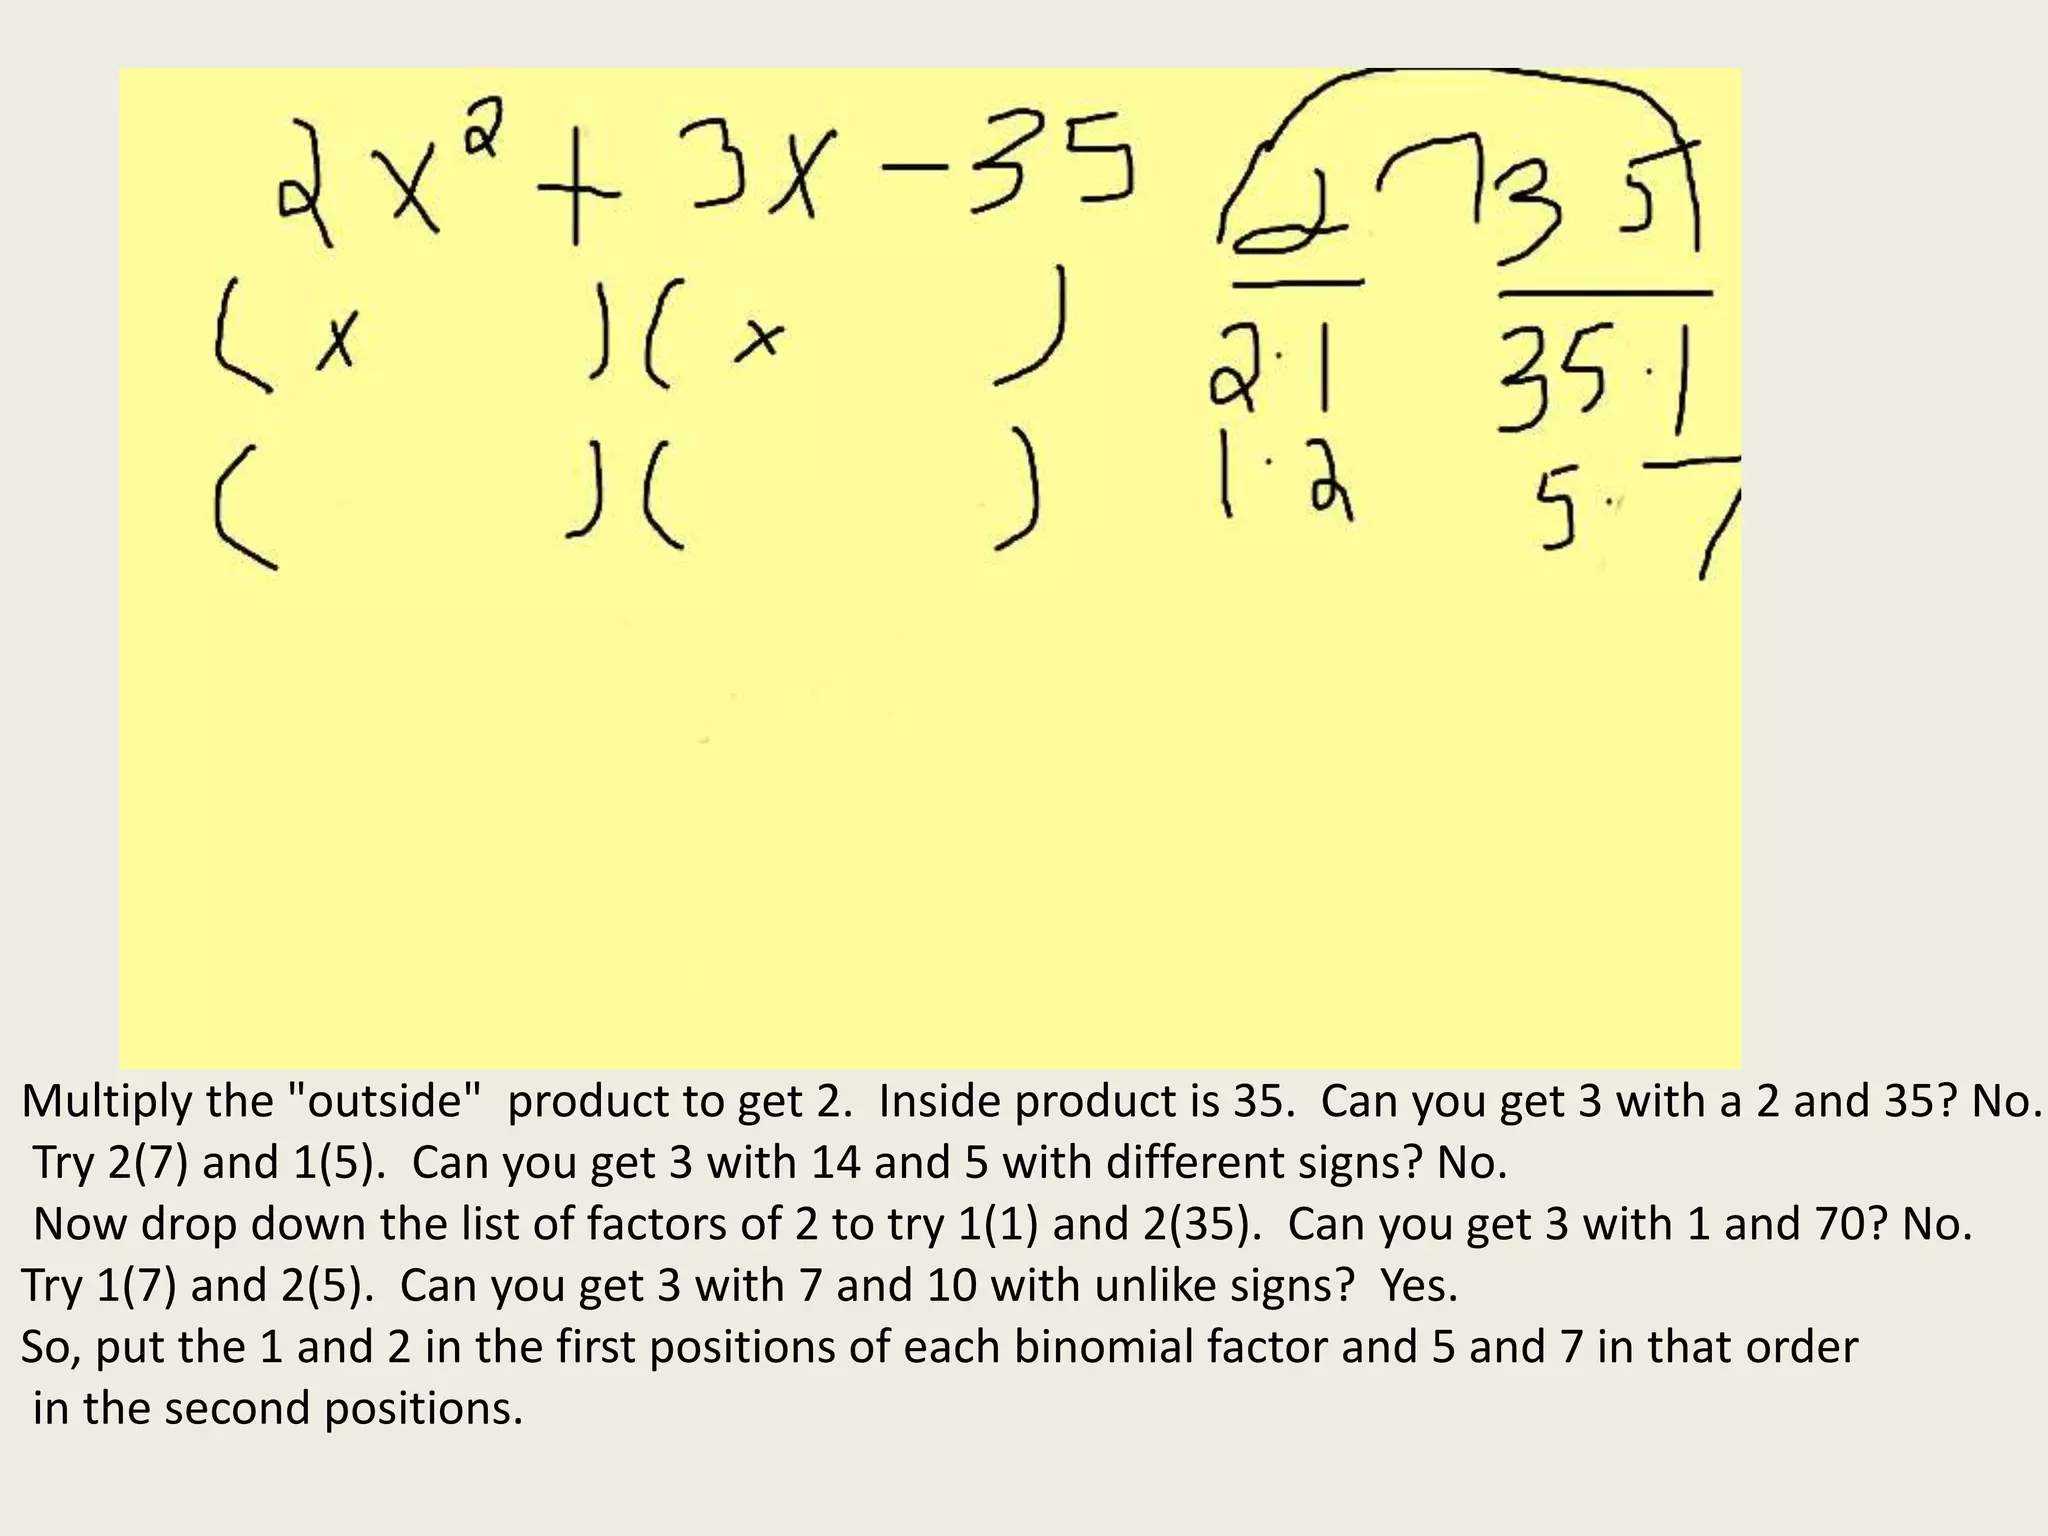 2x² + 3x - 35
( x )( x )
( )( )
2 35
2·1 35·1
1·2 5·7
Multiply the "outside"  product to get 2.  Inside product is 35.  Can you get 3 with a 2 and 35? No.
Try 2(7) and 1(5).  Can you get 3 with 14 and 5 with different signs? No.
Now drop down the list of factors of 2 to try 1(1) and 2(35).  Can you get 3 with 1 and 70? No.
Try 1(7) and 2(5).  Can you get 3 with 7 and 10 with unlike signs?  Yes.
So, put the 1 and 2 in the first positions of each binomial factor and 5 and 7 in that order
in the second positions.